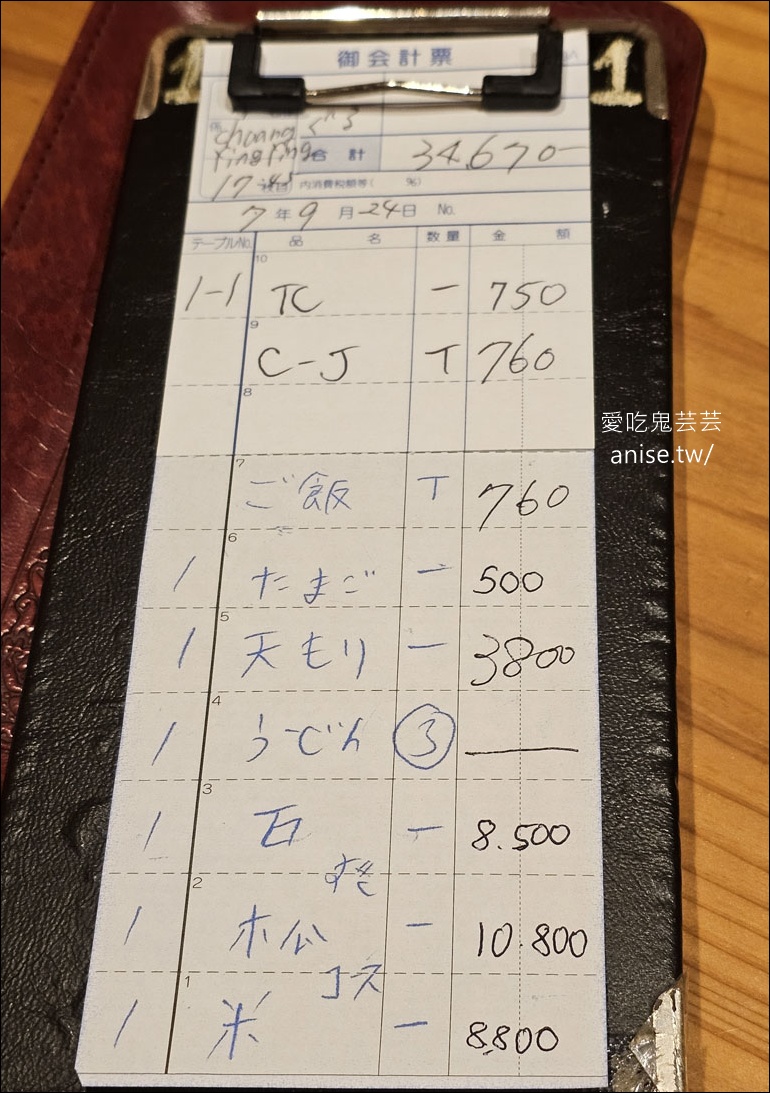 御会計票
1 1
chuang
PingPing
合計 34,670-
17:45 内消費税額等( %)
7年9月24日 No.
テーブルNo. 品名 数量 金額
10
1-1 TC 一 750
9
C-J T 760
8
7
ご飯 T 760
6
1 たまご 一 500
5
1 天もり 一 3800
4
1 うどん ③
3
1 石 一 8.500
すき
2
1 木公 一 10.800
コース
1
1 米 一 8,800
愛吃鬼芸芸
anise.tw/